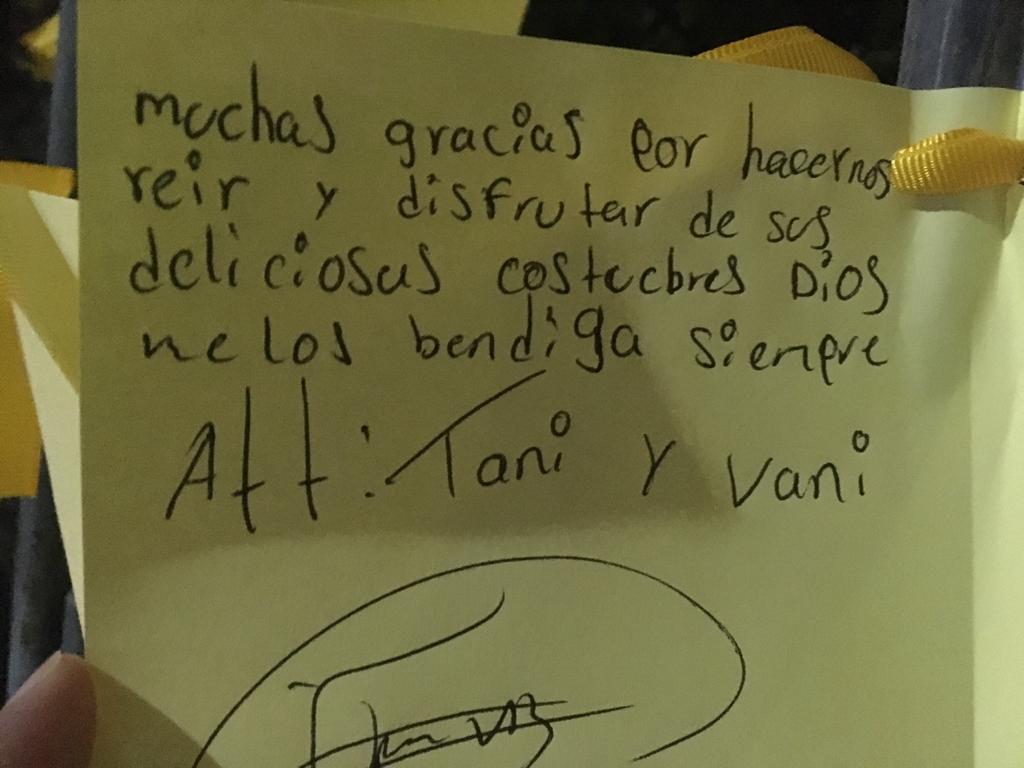 muchas gracias por hacernos
reir y disfrutar de sus
deliciosas costucbres Dios
me los bendiga siempre
Att: Tani y Vani